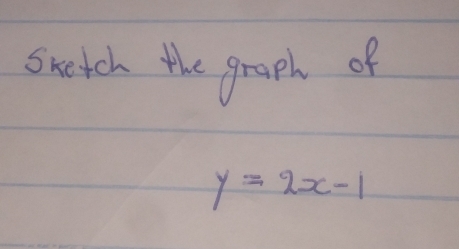 Sketch the graph of
y = 2x-1